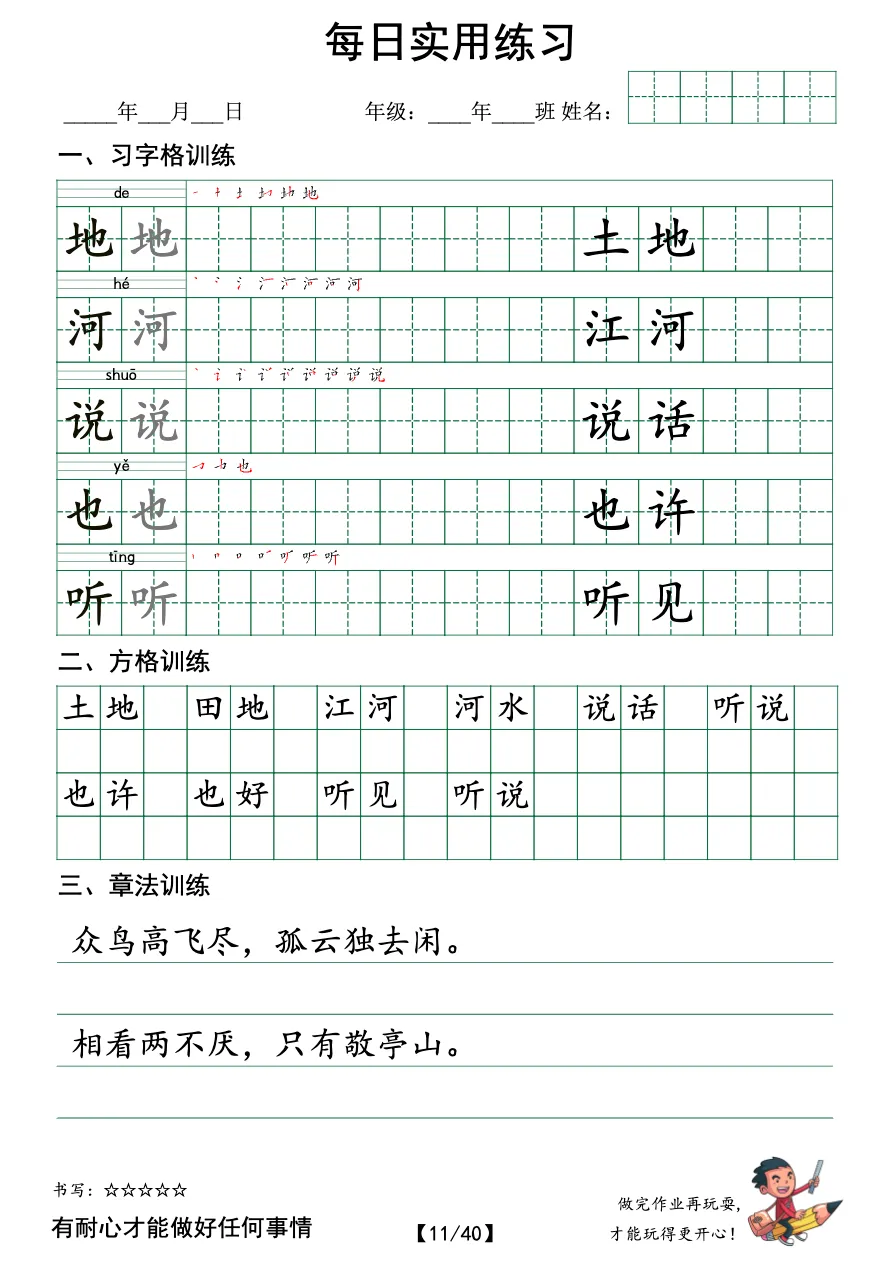 每日实用练习
_____年___月___日 年级：____年____班 姓名：
一、习字格训练
de
地 地 土 地
hé
河 河 江 河
shuō
说 说 说 话
yě
也 也 也 许
tīng
听 听 听 见
二、方格训练
土地 田地 江河 河水 说话 听说
也许 也好 听见 听说
三、章法训练
众鸟高飞尽，孤云独去闲。
相看两不厌，只有敬亭山。
书写：☆☆☆☆☆
做完作业再玩耍，
有耐心才能做好任何事情
【11/40】
才能玩得更开心！